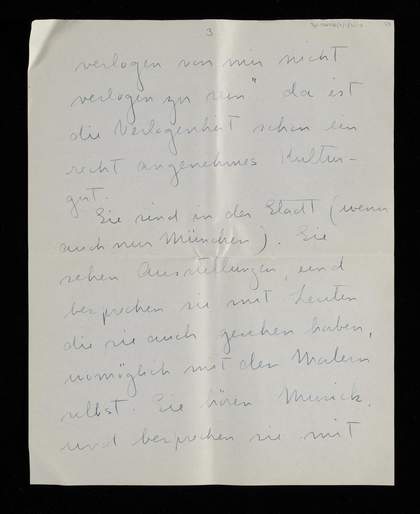 3
verlogen von mir nicht
verlogen zu sein" da ist
die Verlogenheit schon ein
recht angenehmes Kultur-
gut.
Sie sind in der Stadt (wenn
auch nur München). Sie
sehen Ausstellungen, und
besprechen sie mit Leuten
die sie auch gesehen haben,
womöglich mit den Malern
selbst. Sie hören Musick.
und besprechen sie mit